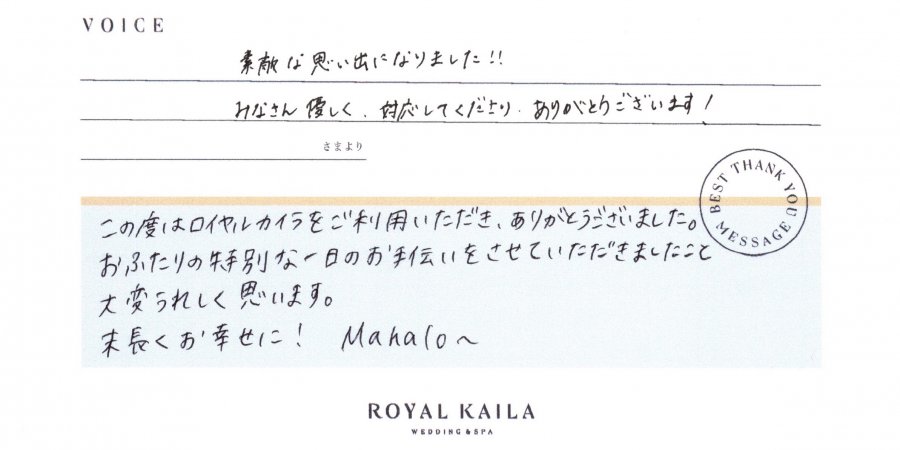 VOICE
素敵な思い出になりました!!
みなさん優しく、対応してくださり、ありがとうございます!
さまより
BEST THANK YOU MESSAGE
この度はロイヤルカイラをご利用いただき、ありがとうございました。
おふたりの特別な一日のお手伝いをさせていただきましたこと
大変うれしく思います。
末長くお幸せに! Mahalo~
ROYAL KAILA
WEDDING & SPA